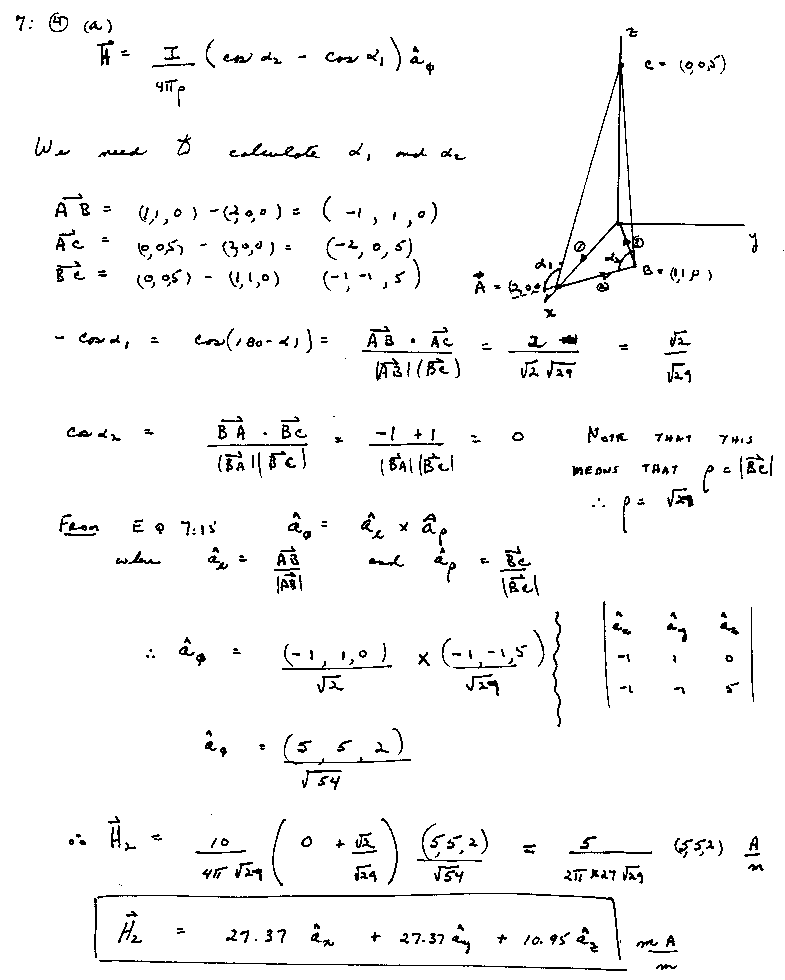 7: ④ (a)
H = I / 4πρ (cos α₂ - cos α₁) âᵩ
z
C = (0,0,5)
We need to calculate α₁ and α₂
AB = (1,1,0) - (2,0,0) = (-1, 1, 0)
AC = (0,0,5) - (2,0,0) = (-2, 0, 5)
BC = (0,0,5) - (1,1,0) (-1, -1, 5)
y
α₁
α₂
A = (2,0,0)
B = (1,1,0)
x
- cos α₁ = cos(180 - α₁) = AB · AC / |AB| |BC| = 2 / √2 √29 = √2 / √29
cos α₂ = BA · BC / |BA| |BC| = -1 + 1 / |BA| |BC| = 0
NOTE THAT THIS
MEANS THAT ρ = |BC|
∴ ρ = √29
From EQ 7.15 âᵩ = âₗ × âᵨ
where âₗ = AB / |AB| and âᵨ = BC / |BC|
∴ âᵩ = (-1, 1, 0) / √2 × (-1, -1, 5) / √29
âₓ âᵧ â_z
-1 1 0
-1 -1 5
âᵩ = (5, 5, 2) / √54
∴ H₂ = 10 / 4π √29 ( 0 + √2 / √29 ) (5,5,2) / √54 = 5 / 2π × 27 √29 (5,5,2) A/m
H₂ = 27.37 âₓ + 27.37 âᵧ + 10.95 â_z mA/m